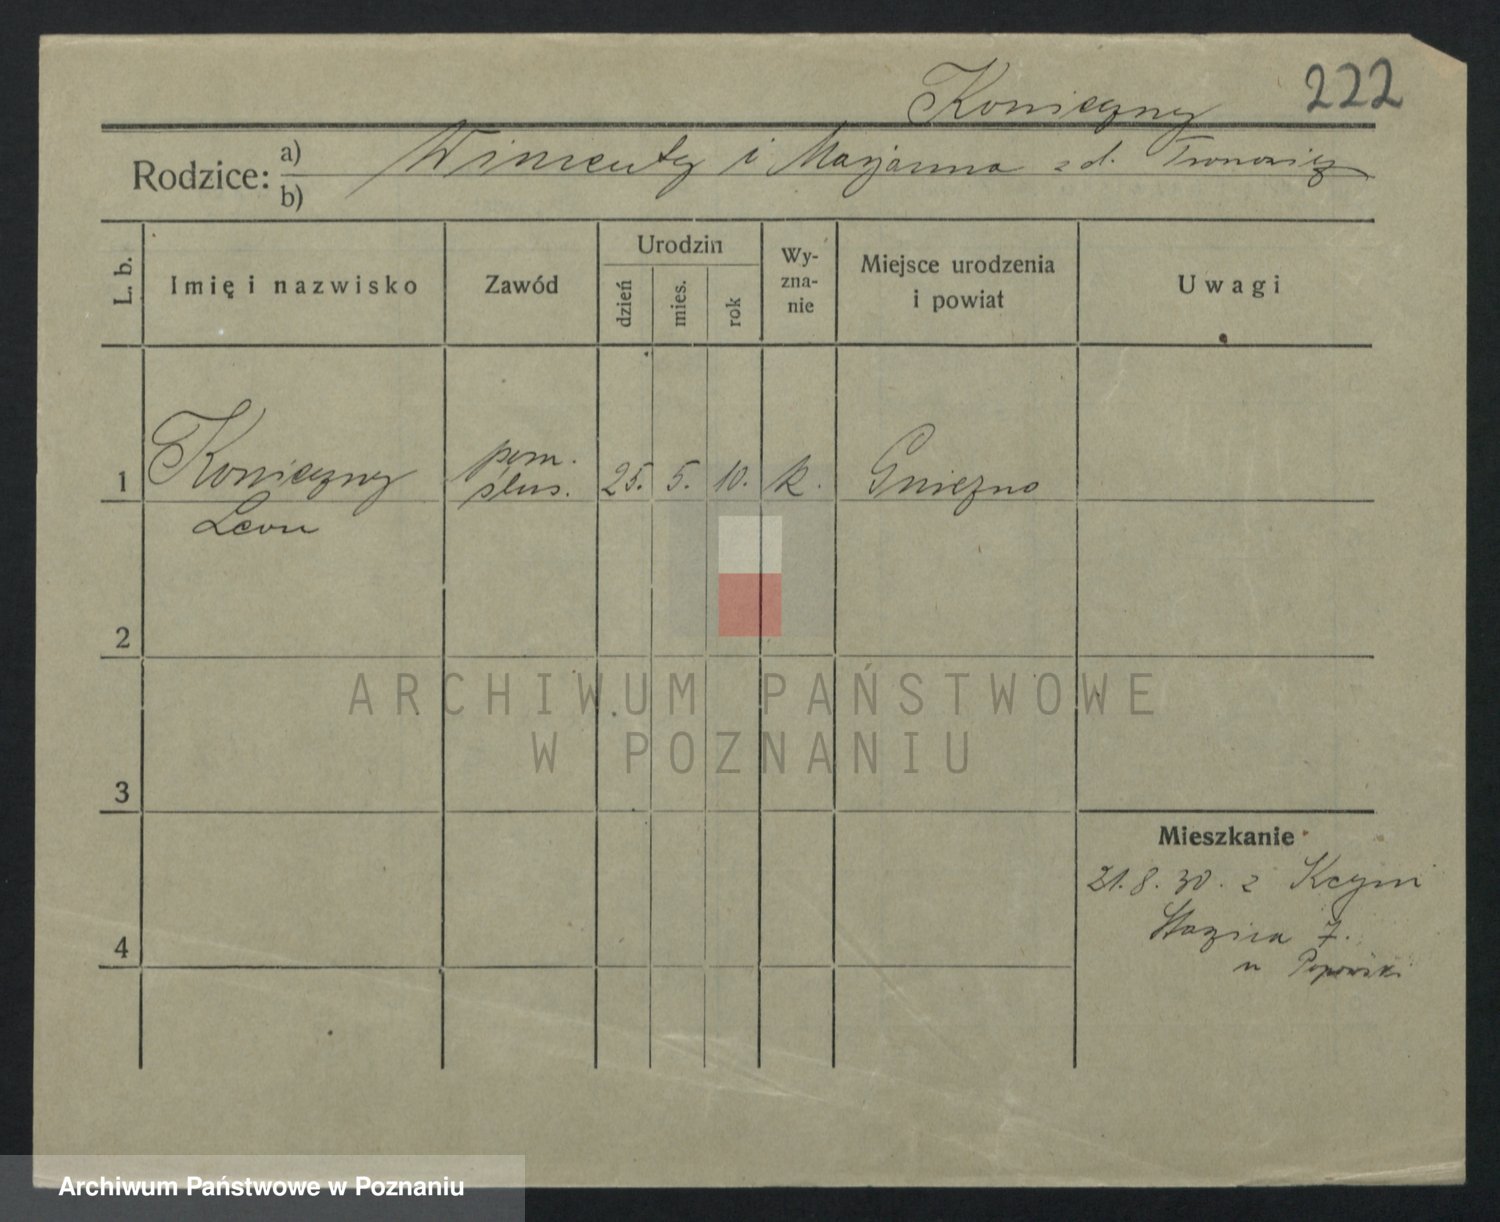 Konieczny 222
Rodzice: a) Wincenty i Marjanna z d.
b)
L. b. Imię i nazwisko Zawód Urodzin dzień mies. rok Wy-zna-nie Miejsce urodzenia i powiat Uwagi
1 Konieczny pom. ślus. 25. 5. 10. k. Gniezno
Leon
2
ARCHIWUM PAŃSTWOWE
W POZNANIU
3
Mieszkanie
21.8.30. z Kcyni
Staszica 7.
4
u Popowski
Archiwum Państwowe w Poznaniu